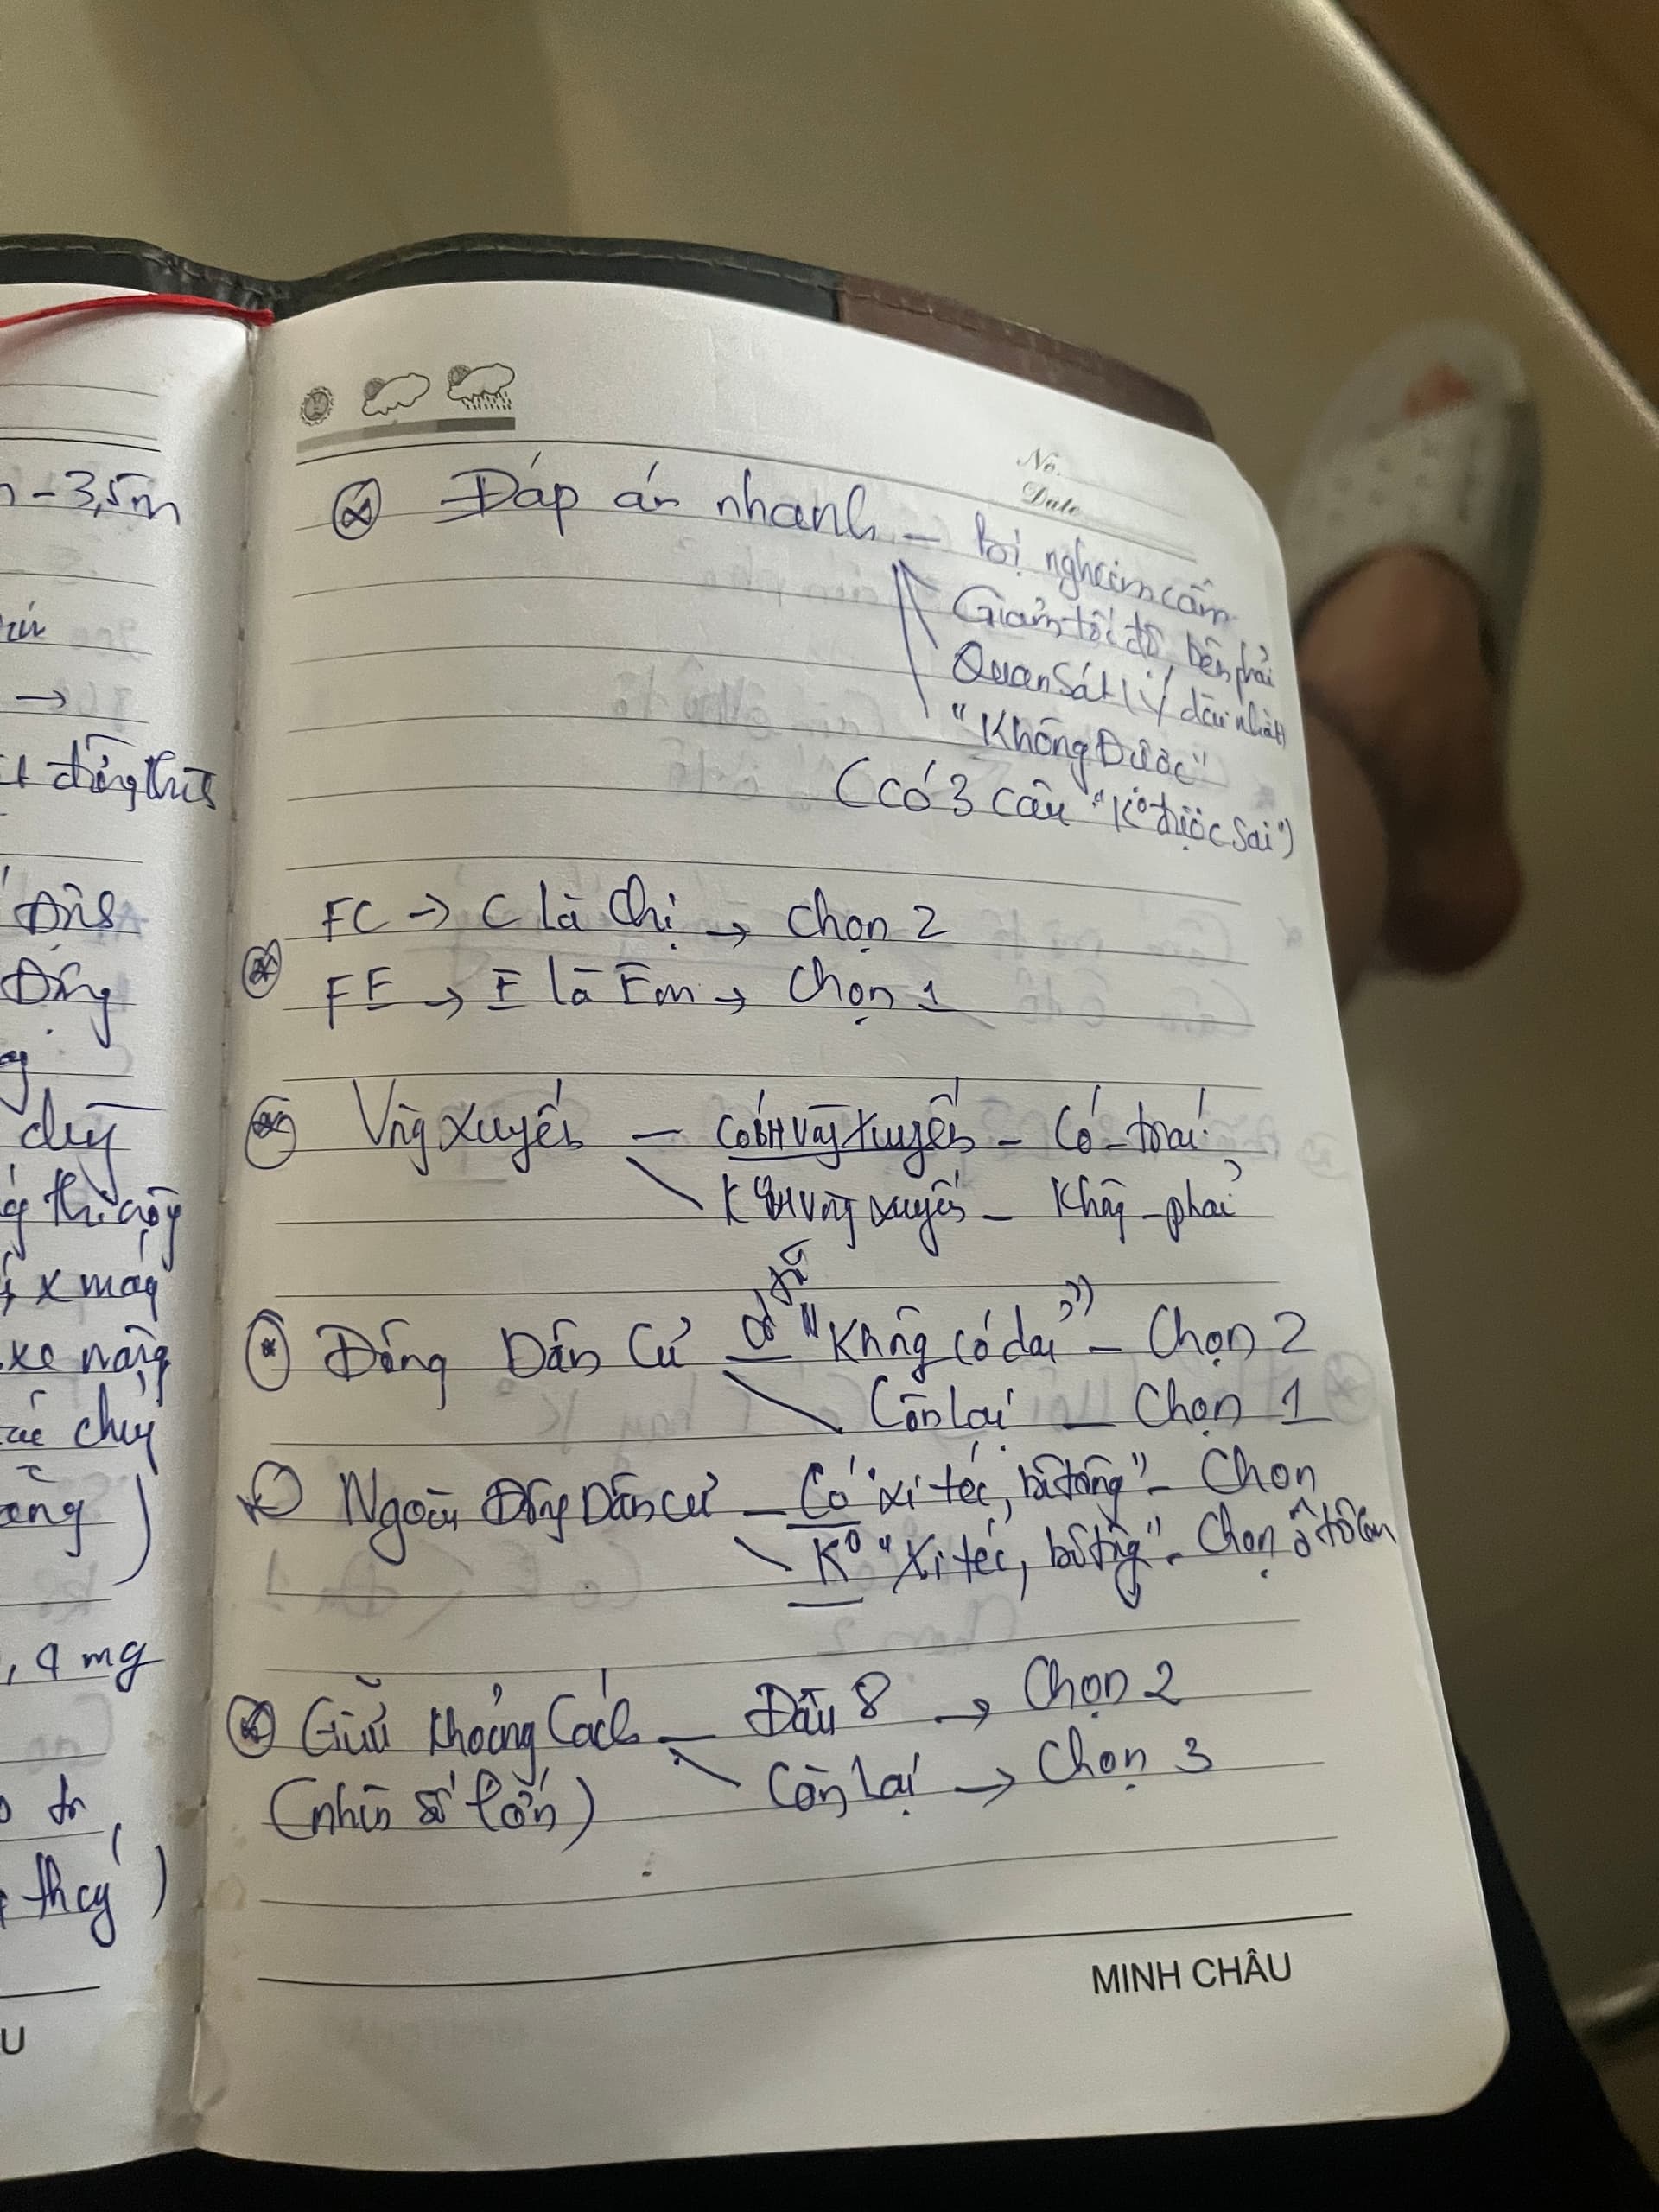 n - 3,5m
→
đứng
Đông
dụ
x máy
xe nặng
chuy
, 4 mg
thay )
U
No.
Date
Đáp án nhanh – bị nghiêm cấm
Giảm tốc độ, bên phải
Quan sát / ý dài nhất
"Không Được"
(có 3 câu "K° được sai")
FC → C là Chị → Chọn 2
FE → E là Em → Chọn 1
Vòng xuyến – Có BH Vòng xuyến – Có – trái
K BH Vòng xuyến – Không – phải
Đông Dân Cư – có từ "Không có dải" – Chọn 2
Còn lại – Chọn 1
Ngoài Đông Dân cư – Có "xi téc, bê tông" – Chọn
K° "Xi téc, bê tông" – Chọn ô tô con
Giữ khoảng Cách – Đầu 8 → Chọn 2
(nhìn số lớn) Còn lại → Chọn 3
MINH CHÂU